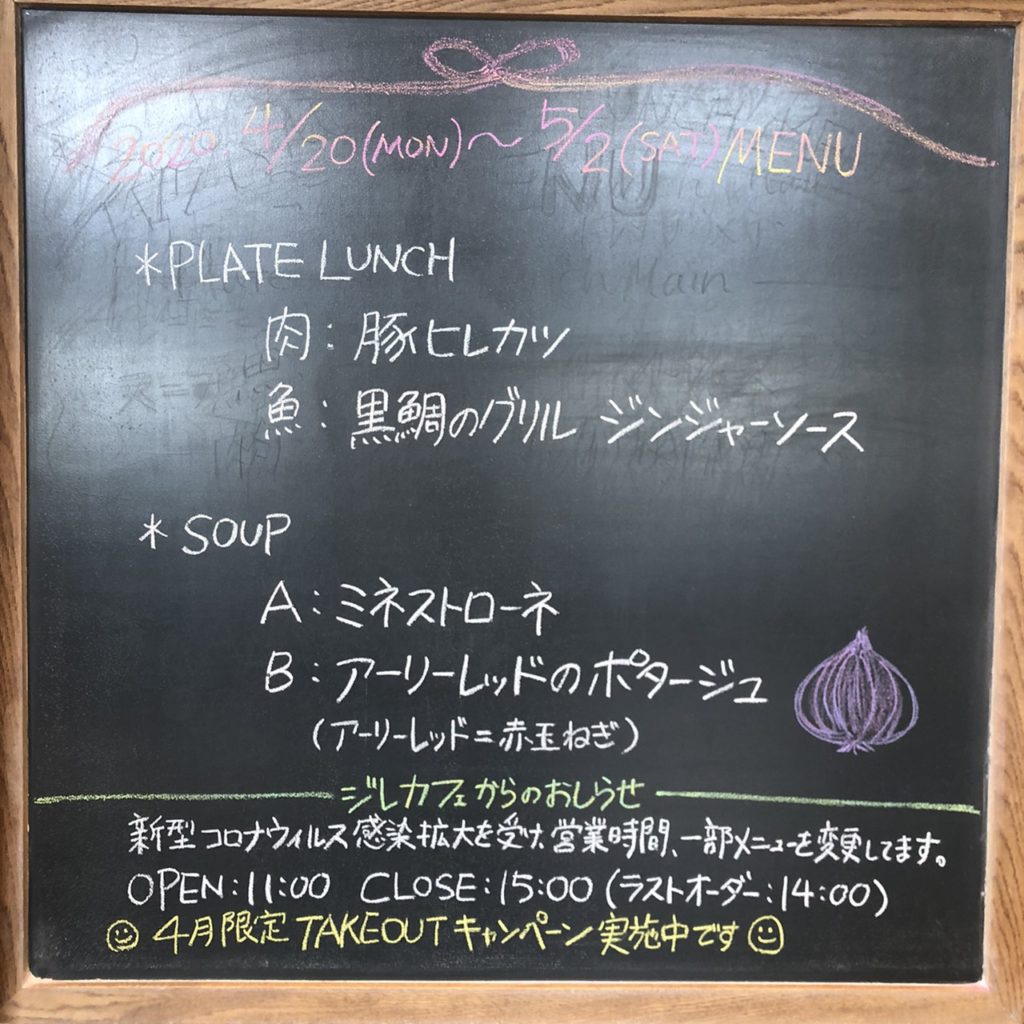 2020. 4/20(MON)〜 5/2(SAT)/MENU
*PLATE LUNCH
肉：豚ヒレカツ
魚：黒鯛のグリル ジンジャーソース
* SOUP
A：ミネストローネ
B：アーリーレッドのポタージュ
(アーリーレッド=赤玉ねぎ)
ジレカフェからのおしらせ
新型コロナウィルス感染拡大を受け、営業時間、一部メニューを変更してます。
OPEN：11:00 CLOSE：15:00(ラストオーダー：14:00)
4月限定TAKEOUTキャンペーン実施中です